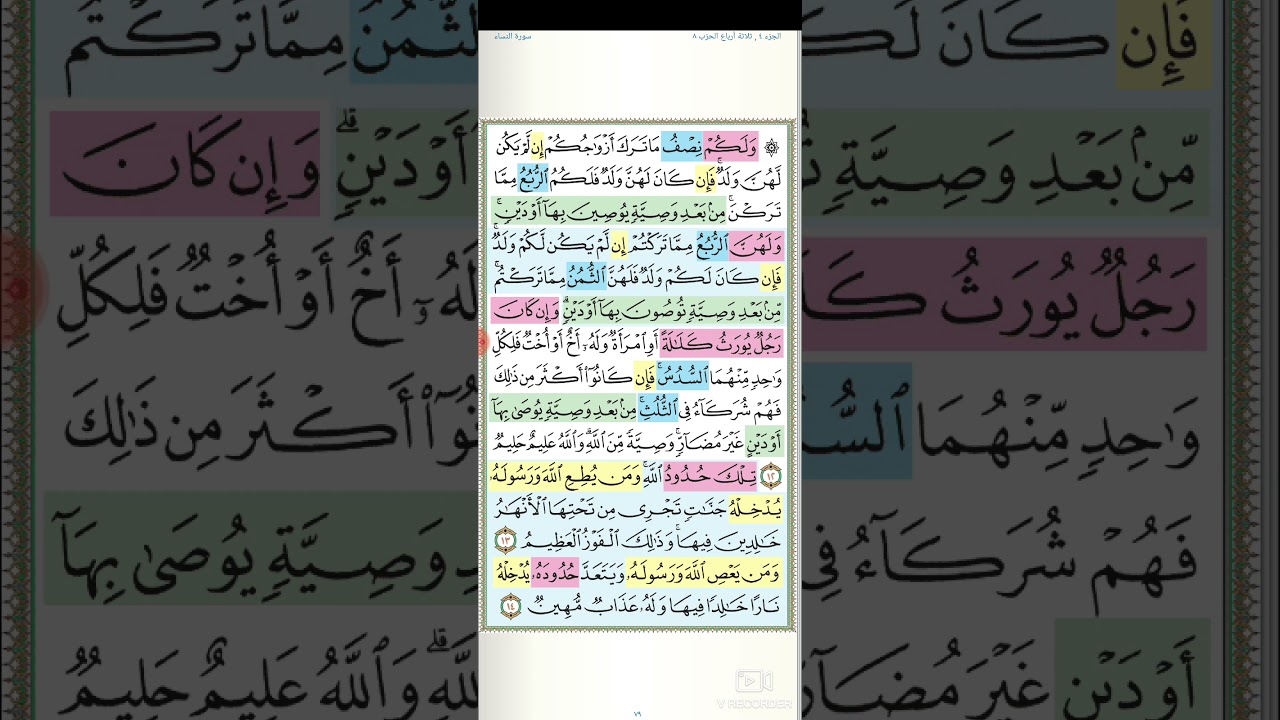 الجزء ٤ , ثلاثة أرباع الحزب ٨
سورة النساء
۞ وَلَكُمْ نِصْفُ مَا تَرَكَ أَزْوَٰجُكُمْ إِن لَّمْ يَكُن
لَّهُنَّ وَلَدٌۚ فَإِن كَانَ لَهُنَّ وَلَدٌ فَلَكُمُ ٱلرُّبُعُ مِمَّا
تَرَكْنَۚ مِنۢ بَعْدِ وَصِيَّةٍ يُوصِينَ بِهَآ أَوْ دَيْنٍۚ
وَلَهُنَّ ٱلرُّبُعُ مِمَّا تَرَكْتُمْ إِن لَّمْ يَكُن لَّكُمْ وَلَدٌۚ
فَإِن كَانَ لَكُمْ وَلَدٌ فَلَهُنَّ ٱلثُّمُنُ مِمَّا تَرَكْتُمۚ
مِّنۢ بَعْدِ وَصِيَّةٍ تُوصُونَ بِهَآ أَوْ دَيْنٍۗ وَإِن كَانَ
رَجُلٌ يُورَثُ كَلَٰلَةً أَوِ ٱمْرَأَةٌ وَلَهُۥٓ أَخٌ أَوْ أُخْتٌ فَلِكُلِّ
وَٰحِدٍ مِّنْهُمَا ٱلسُّدُسُۚ فَإِن كَانُوٓا۟ أَكْثَرَ مِن ذَٰلِكَ
فَهُمْ شُرَكَآءُ فِى ٱلثُّلُثِۚ مِنۢ بَعْدِ وَصِيَّةٍ يُوصَىٰ بِهَآ
أَوْ دَيْنٍ غَيْرَ مُضَآرٍّۚ وَصِيَّةً مِّنَ ٱللَّهِۗ وَٱللَّهُ عَلِيمٌ حَلِيمٌ
١٢ تِلْكَ حُدُودُ ٱللَّهِۚ وَمَن يُطِعِ ٱللَّهَ وَرَسُولَهُۥ
يُدْخِلْهُ جَنَّٰتٍ تَجْرِى مِن تَحْتِهَا ٱلْأَنْهَٰرُ
خَٰلِدِينَ فِيهَاۚ وَذَٰلِكَ ٱلْفَوْزُ ٱلْعَظِيمُ ١٣
وَمَن يَعْصِ ٱللَّهَ وَرَسُولَهُۥ وَيَتَعَدَّ حُدُودَهُۥ يُدْخِلْهُ
نَارًا خَٰلِدًا فِيهَا وَلَهُۥ عَذَابٌ مُّهِينٌ ١٤
V RECORDER
٧٩